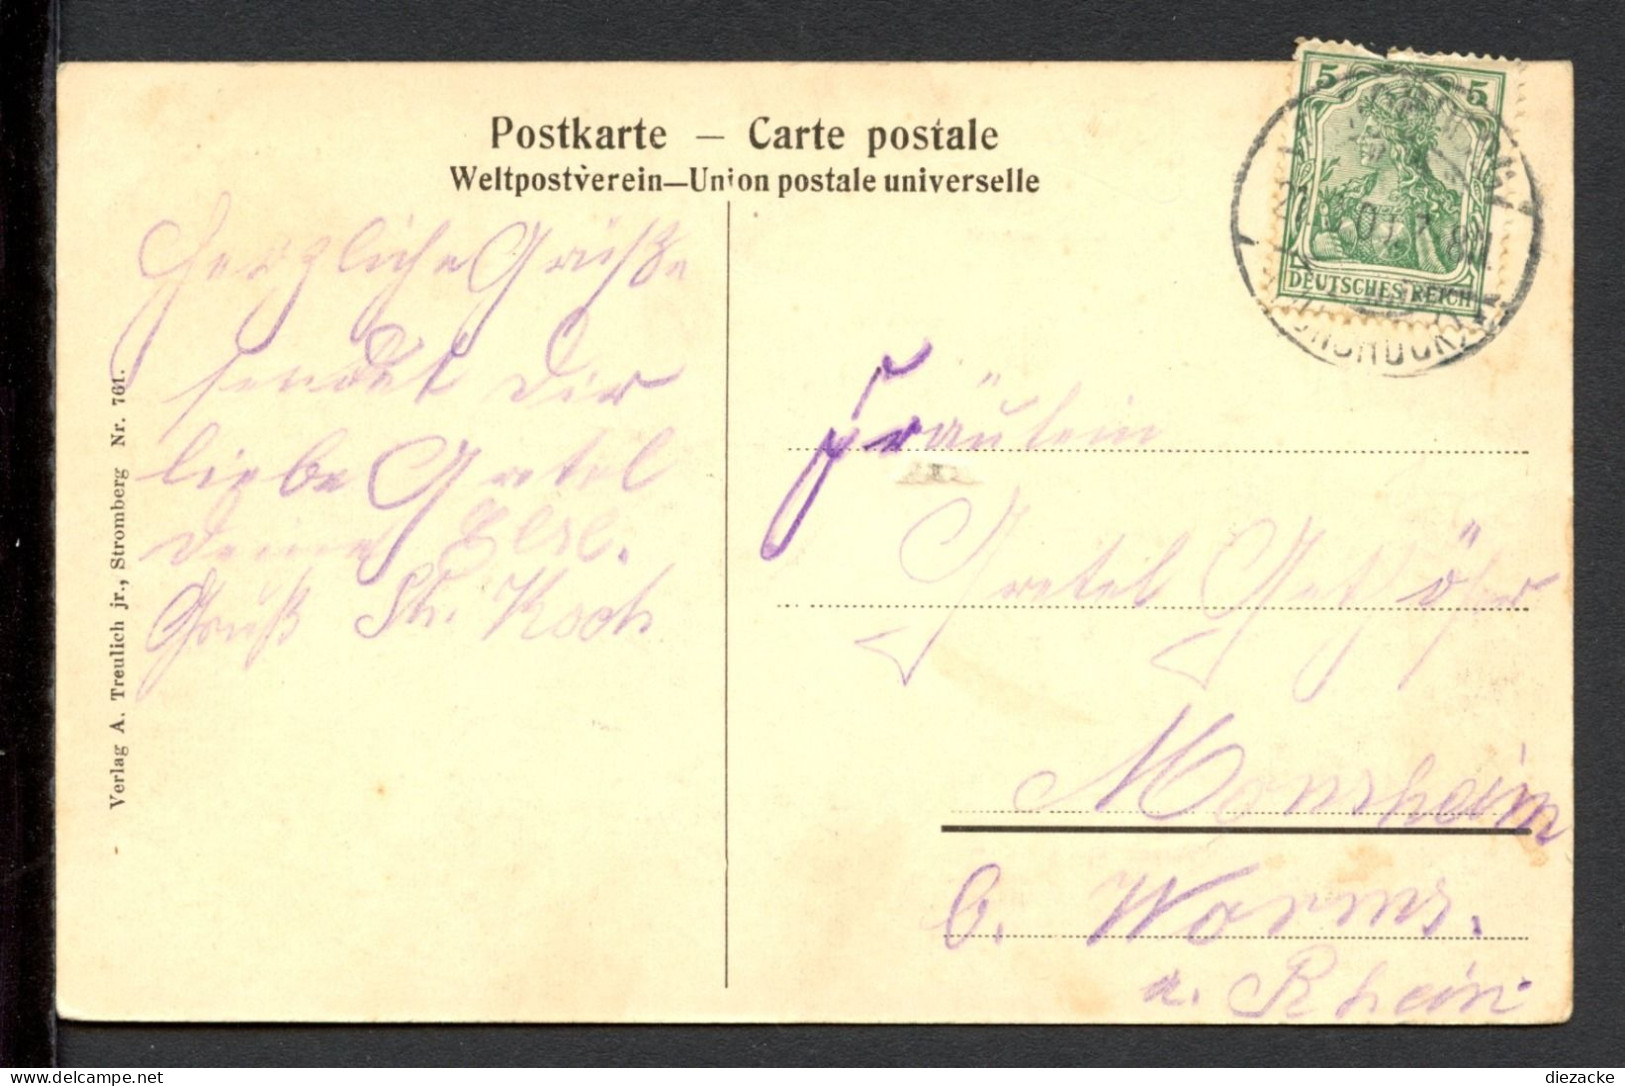 Postkarte — Carte postale
Weltpostverein—Union postale universelle
5 5
DEUTSCHES REICH
Herzliche Grüße
sendet Dir
liebe Gretel
deine Else.
Gruß Kath. Koch
Fräulein
Gretel
Monsheim
b. Worms.
a. Rhein
Verlag A. Treulich jr., Stromberg Nr. 761.
diezacke